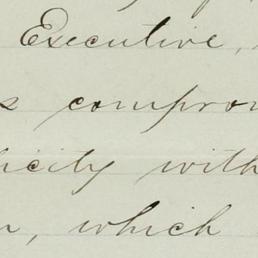 Executive,
s compro
icity with
, which